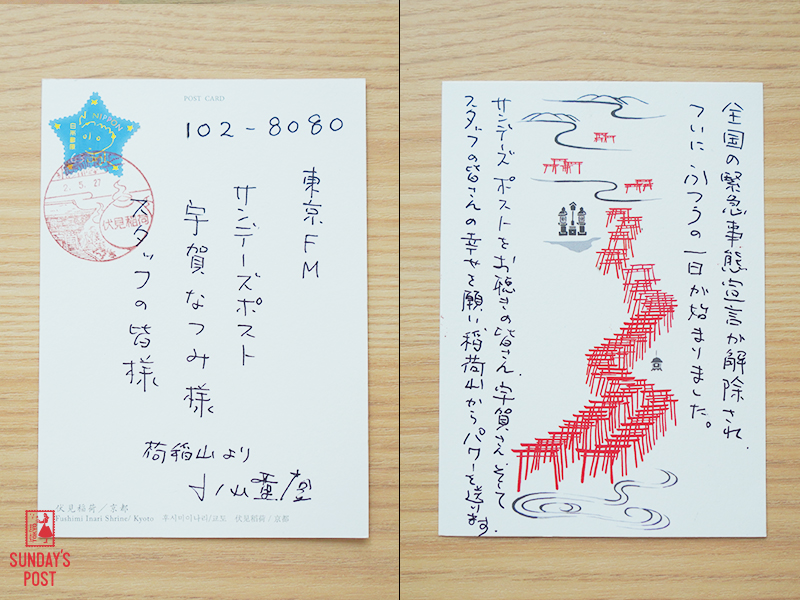 POST CARD
NIPPON
日本郵便
2.5.27
伏見稲荷
102-8080
東京FM
サンデーズポスト
宇賀なつみ様
スタッフの皆様
荷稲山より
伏見稲荷/京都
Fushimi Inari Shrine/ Kyoto 후시미이나리/교토 伏見稲荷/京都
SUNDAY'S
POST
全国の緊急事態宣言が解除され、
ついにふつうの一日が始まりました。
サンデーズポストをお聴きの皆さん、宇賀さん、そして
スタッフの皆さんの幸せを願い、稲荷山からパワーを送ります。